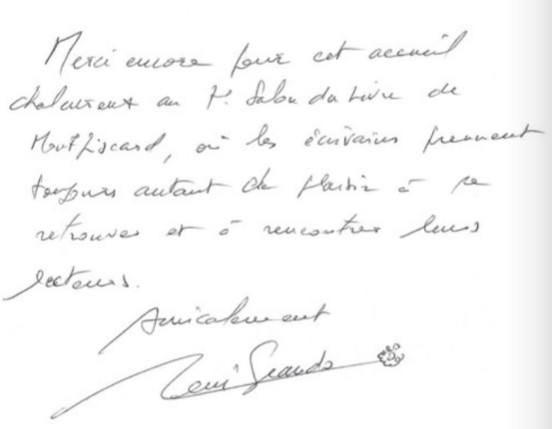 Merci encore pour cet accueil
chaleureux au Salon du Livre de
Montgiscard, où les écrivains prennent
toujours autant de plaisir à se
retrouver et à rencontrer leurs
lecteurs.
Amicalement